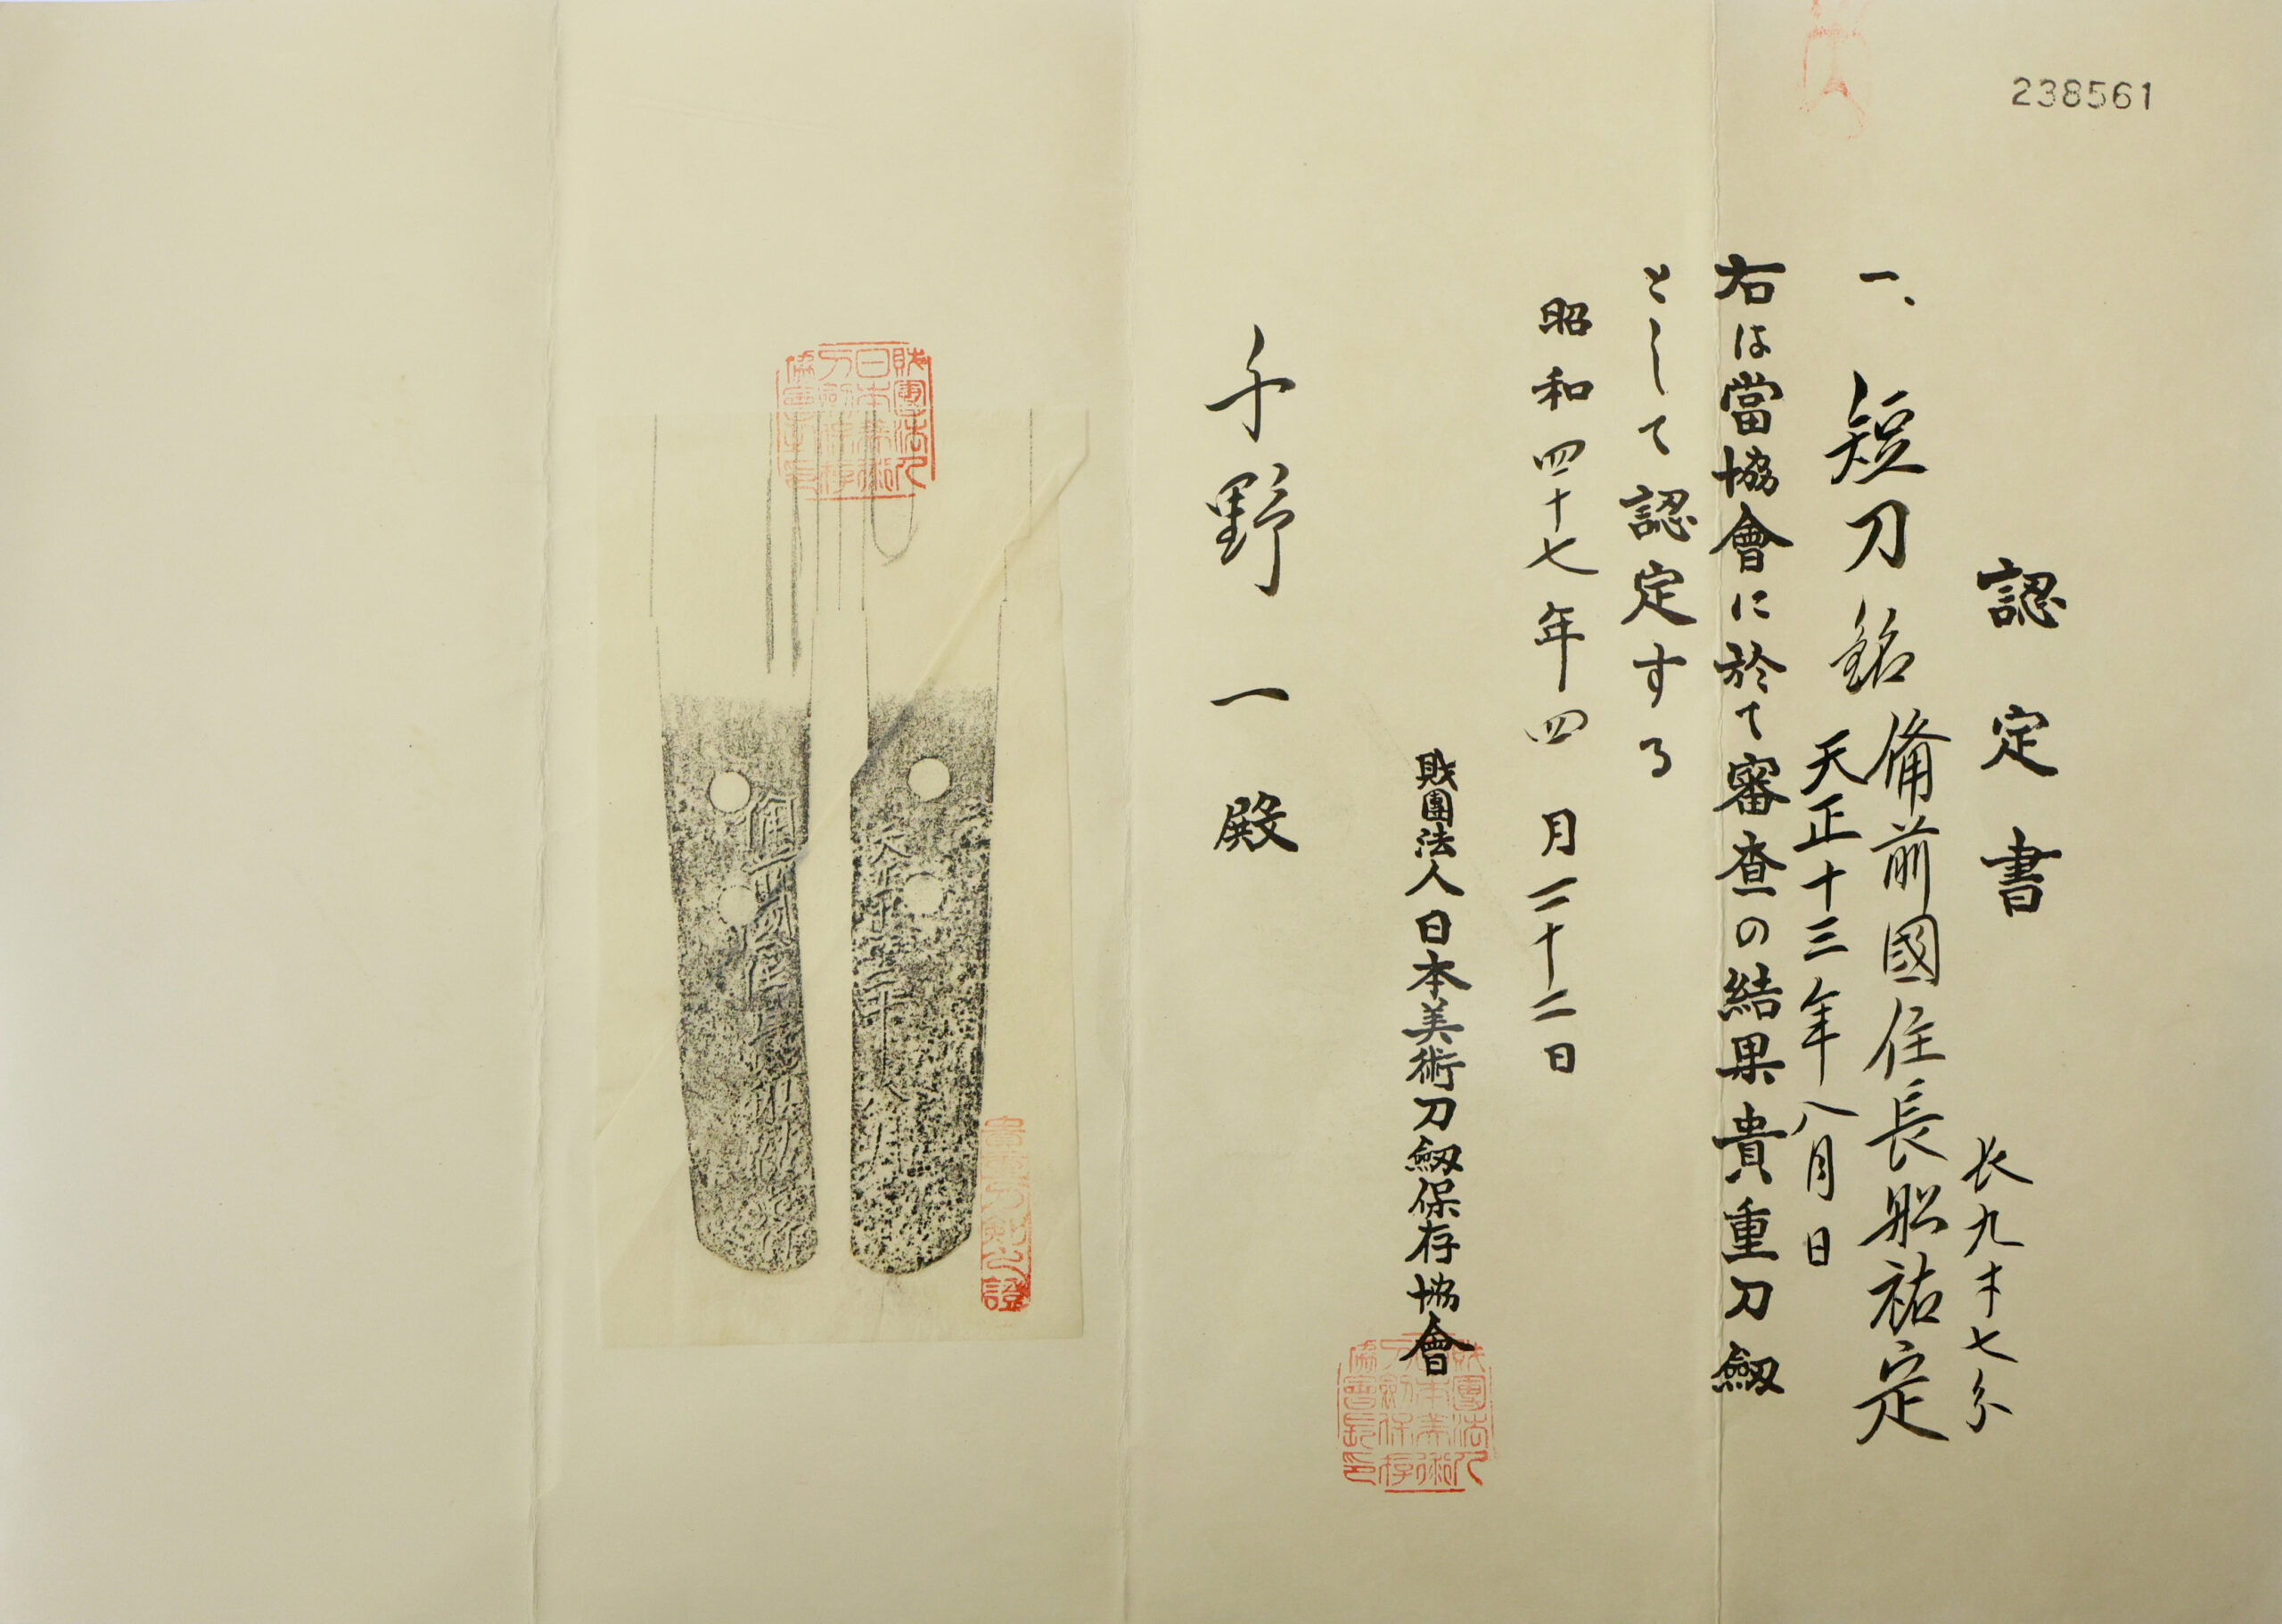 238561
認定書
長九寸七分
一、短刀銘備前國住長船祐定
天正十三年八月日
右は當協會に於て審査の結果貴重刀劔
として認定する
昭和四十七年四月二十二日
財團法人日本美術刀劔保存協會
財團法人日本美術刀劔保存協會長印
千野一殿
財團法人日本美術刀劔保存協會長印
天正十三年八月日
備前國住長船祐定
貴重刀剣之證